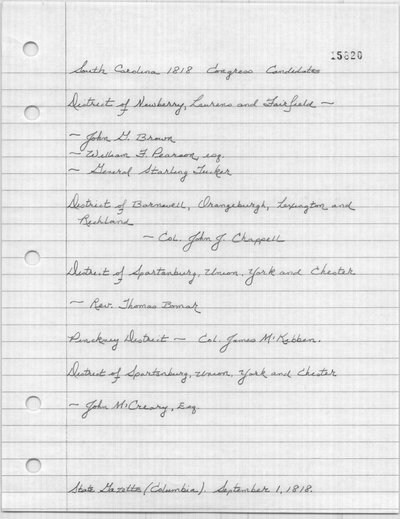 15820
South Carolina 1818 Congress Candidates
District of Newberry, Laurens and Fairfield —
— John G. Brown
— William F. Pearson, esq.
— General Starling Tucker
District of Barnwell, Orangeburgh, Lexington and
Richland
— Col. John J. Chappell
District of Spartenburg, Union, York and Chester
— Rev. Thomas Bomar
Pinckney District — Col. James McKibben.
District of Spartenburg, Union, York and Chester
— John McCreary, Esq.
State Gazette (Columbia). September 1, 1818.